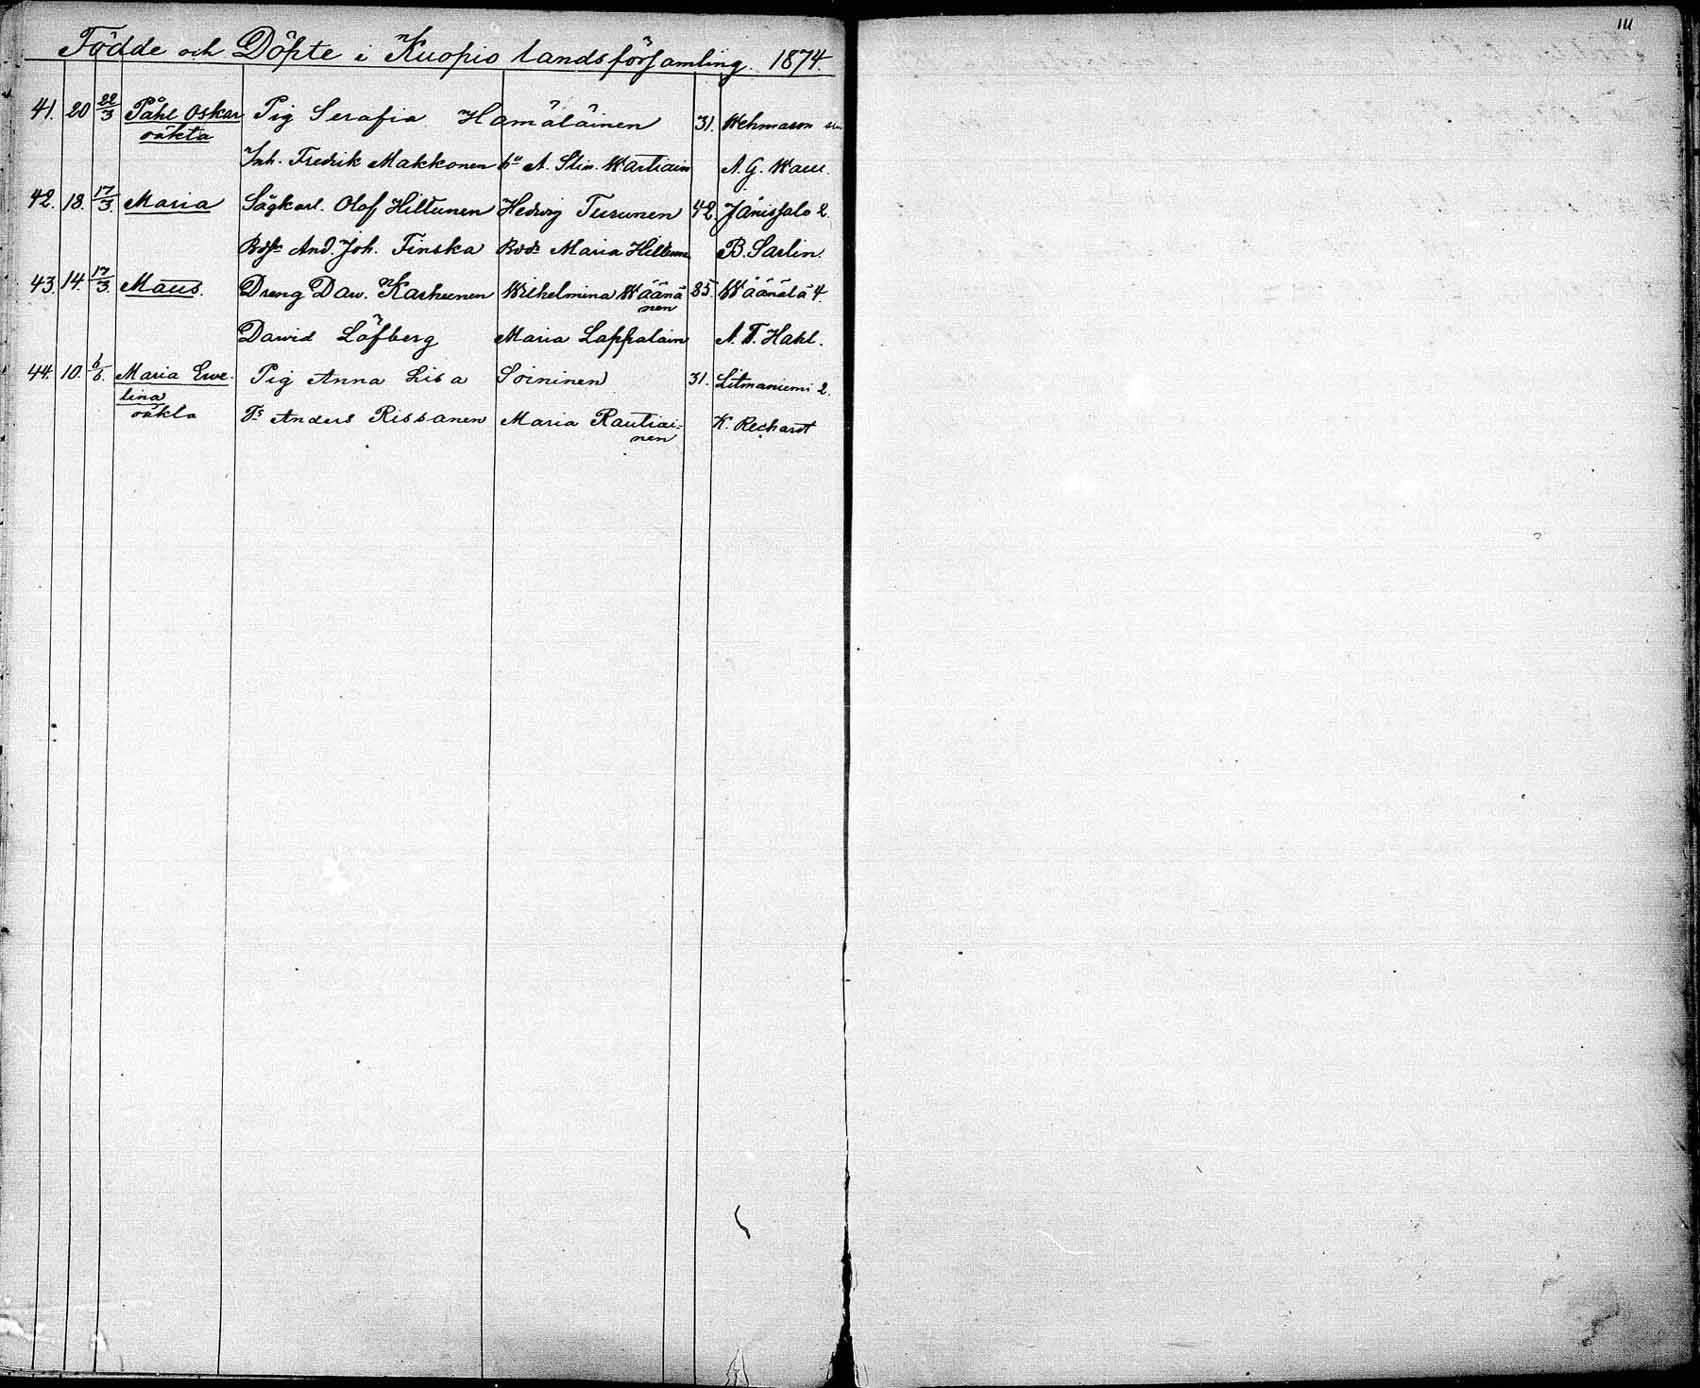 Födde och Döpte i Kuopio landsförsamling. 1874.
111
41. 20 22/3 Påhl Oskar Pig Serafia Hämäläinen 31. Wehmason
oäkta
Inh. Fredrik Makkonen A. Stin. Wartiain A. G. Waen.
42. 18. 17/3. Maria Sågkarl. Olof Hiltunen Hedvig Turunen 42. Jänissalo 2.
And. Joh. Finska Maria Hiltunen B. Sarlin.
43. 14. 17/3. Maus. Dreng Daw. Karhunen Wilhelmina Wäänä 35. Wäänälä 4.
nen
Dawid Löfberg Maria Lappalain A. T. Hahl.
44. 10. 6/5. Maria Ewe- Pig Anna Lisa Soininen 31. Litmaniemi 2.
lina
oäkta Ts Anders Rissanen Maria Rautiai- K. Rechardt
nen